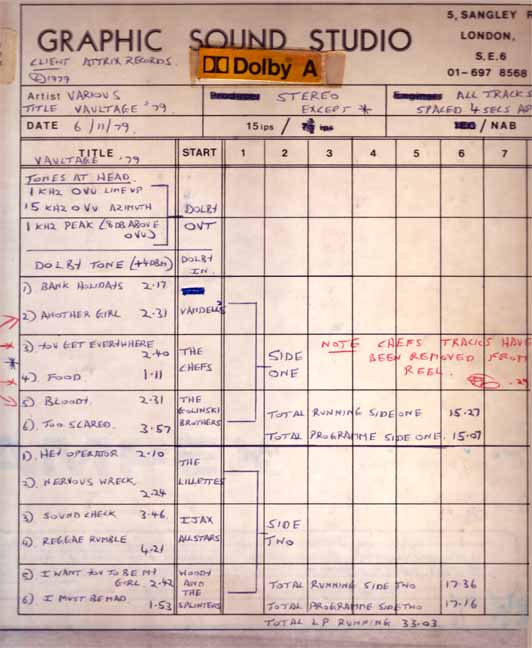 5, SANGLEY R
GRAPHIC SOUND STUDIO
LONDON,
S.E.6
01-697 8568
CLIENT ATTRIX RECORDS.
Ⓟ1979
Dolby A
Artist VARIOUS
TITLE VAULTAGE '79
Producer STEREO
EXCEPT *
Engineer ALL TRACKS
SPACED 4 SECS AP
DATE 6/11/79.
15 ips / 7½ ips
IEC / NAB
TITLE START 1 2 3 4 5 6 7
VAULTAGE '79
TONES AT HEAD.
1 KHZ OVU LINE UP
15 KHZ OVU AZIMUTH DOLBY
1 KHZ PEAK (8DB ABOVE OVU) OUT
DOLBY TONE (+4DBM) DOLBY IN.
1) BANK HOLIDAYS 2.17
2) ANOTHER GIRL 2.31 VANDELLS
3) YOU GET EVERYWHERE 2.40 THE CHEFS
4) FOOD. 1.11
SIDE ONE
NOTE CHEFS TRACKS HAVE
BEEN REMOVED FROM
REEL.
5) BLOODY. 2.31 THE GOLINSKI BROTHERS
6) TOO SCARED. 3.57
TOTAL RUNNING SIDE ONE 15.27
TOTAL PROGRAMME SIDE ONE. 15.07
1). HEY OPERATOR 2.10 THE LILLETTES
2). NERVOUS WRECK. 2.24
3) SOUND CHECK 3.46. IJAX ALLSTARS
4). REGGAE RUMBLE 4.21
SIDE TWO
5) I WANT YOU TO BE MY GIRL. 2.42 WOODY AND THE SPLINTERS
6) I MUST BE MAD. 1.53
TOTAL RUNNING SIDE TWO 17.36
TOTAL PROGRAMME SIDE TWO 17.16
TOTAL LP RUNNING 33.03.